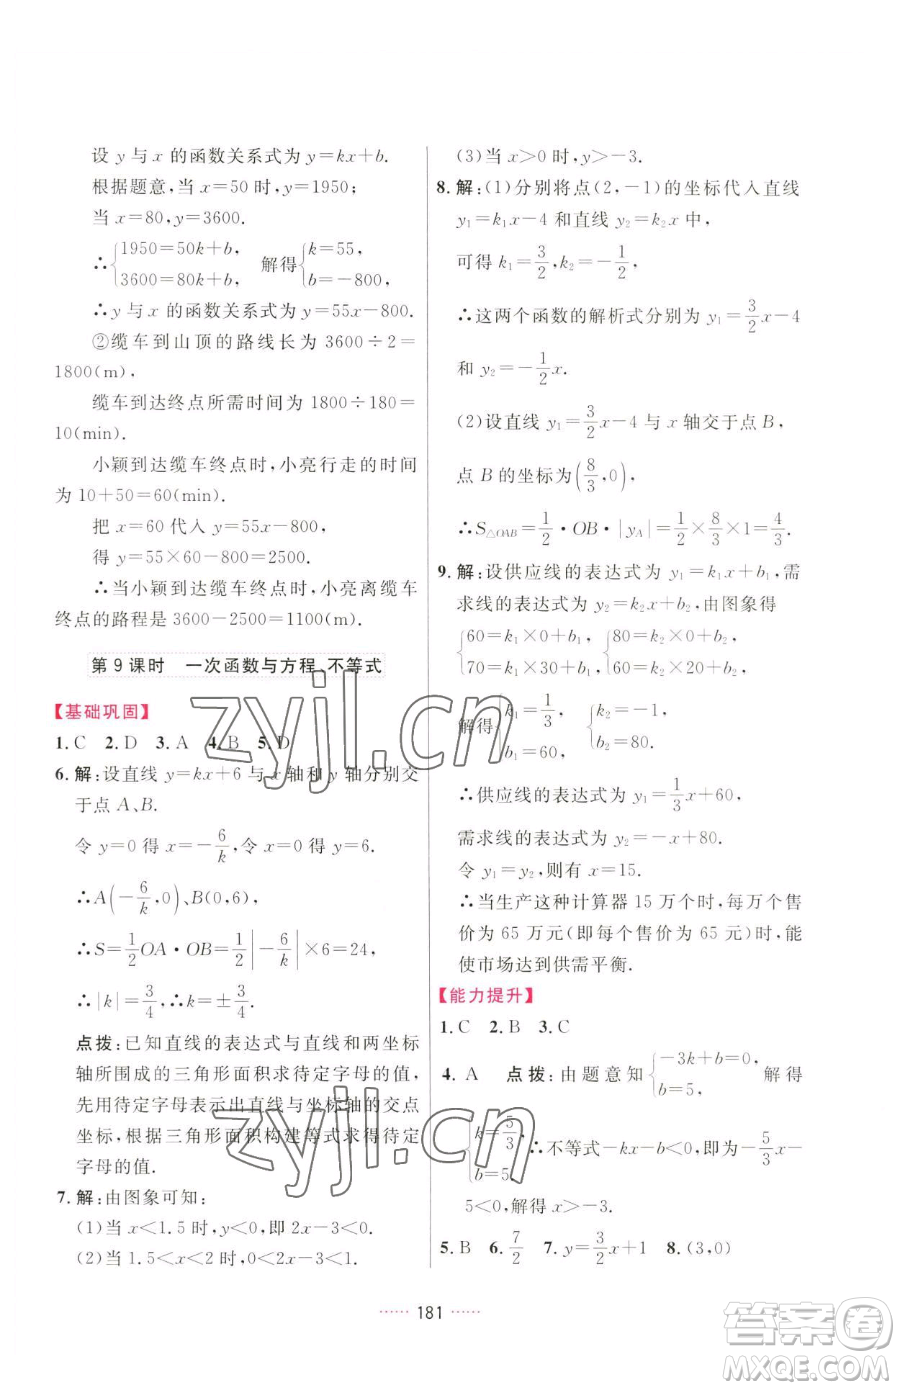 设 y 与 x 的函数关系式为 y=kx+b.
根据题意,当 x=50 时,y=1950;
当 x=80,y=3600.
∴{1950=50k+b, 3600=80k+b, 解得{k=55, b=-800.
∴y 与 x 的函数关系式为 y=55x-800.
②缆车到山顶的路线长为 3600÷2=
1800(m),
缆车到达终点所需时间为 1800÷180=
10(min).
小颖到达缆车终点时,小亮行走的时间
为 10+50=60(min).
把 x=60 代入 y=55x-800,
得 y=55×60-800=2500.
∴当小颖到达缆车终点时,小亮离缆车
终点的路程是 3600-2500=1100(m).
第 9 课时 一次函数与方程、不等式
【基础巩固】
1. C 2. D 3. A 4. B 5. D
6. 解:设直线 y=kx+6 与 x 轴和 y 轴分别交
于点 A、B.
令 y=0 得 x=-6/k,令 x=0 得 y=6.
∴A(-6/k,0)、B(0,6),
∴S=1/2 OA·OB=1/2|-6/k|×6=24,
∴|k|=3/4,∴k=±3/4.
点拨:已知直线的表达式与直线和两坐标
轴所围成的三角形面积求待定字母的值,
先用待定字母表示出直线与坐标轴的交点
坐标,根据三角形面积构建等式求得待定
字母的值.
7. 解:由图象可知:
(1)当 x<1.5 时,y<0,即 2x-3<0.
(2)当 1.5<x<2 时,0<2x-3<1.
(3)当 x>0 时,y>-3.
8. 解:(1)分别将点(2,-1)的坐标代入直线
y₁=k₁x-4 和直线 y₂=k₂x 中,
可得 k₁=3/2,k₂=-1/2,
∴这两个函数的解析式分别为 y₁=3/2 x-4
和 y₂=-1/2 x.
(2)设直线 y₁=3/2 x-4 与 x 轴交于点 B,
点 B 的坐标为(8/3,0),
∴S△OAB=1/2·OB·|y_A|=1/2×8/3×1=4/3.
9. 解:设供应线的表达式为 y₁=k₁x+b₁,需
求线的表达式为 y₂=k₂x+b₂,由图象得
{60=k₁×0+b₁, 70=k₁×30+b₁, {80=k₂×0+b₂, 70=k₂×10+b₂,
解得{k₁=1/3, b₁=60, {k₂=-1, b₂=80.
∴供应线的表达式为 y₁=1/3 x+60,
需求线的表达式为 y₂=-x+80.
令 y₁=y₂,则有 x=15.
∴当生产这种计算器 15 万个时,每万个售
价为 65 万元(即每个售价为 65 元)时,能
使市场达到供需平衡.
【能力提升】
1. C 2. B 3. C
4. A 点拨:由题意知{-3k+b=0, b=5, 解得
{k=5/3, b=5, ∴不等式-kx-b<0,即为-5/3 x-
5<0,解得 x>-3.
5. B 6. 7/2 7. y=3/2 x+1 8. (3,0)
181
zyjl.cn
zyjl.cn
答案圈
MXQE.COM